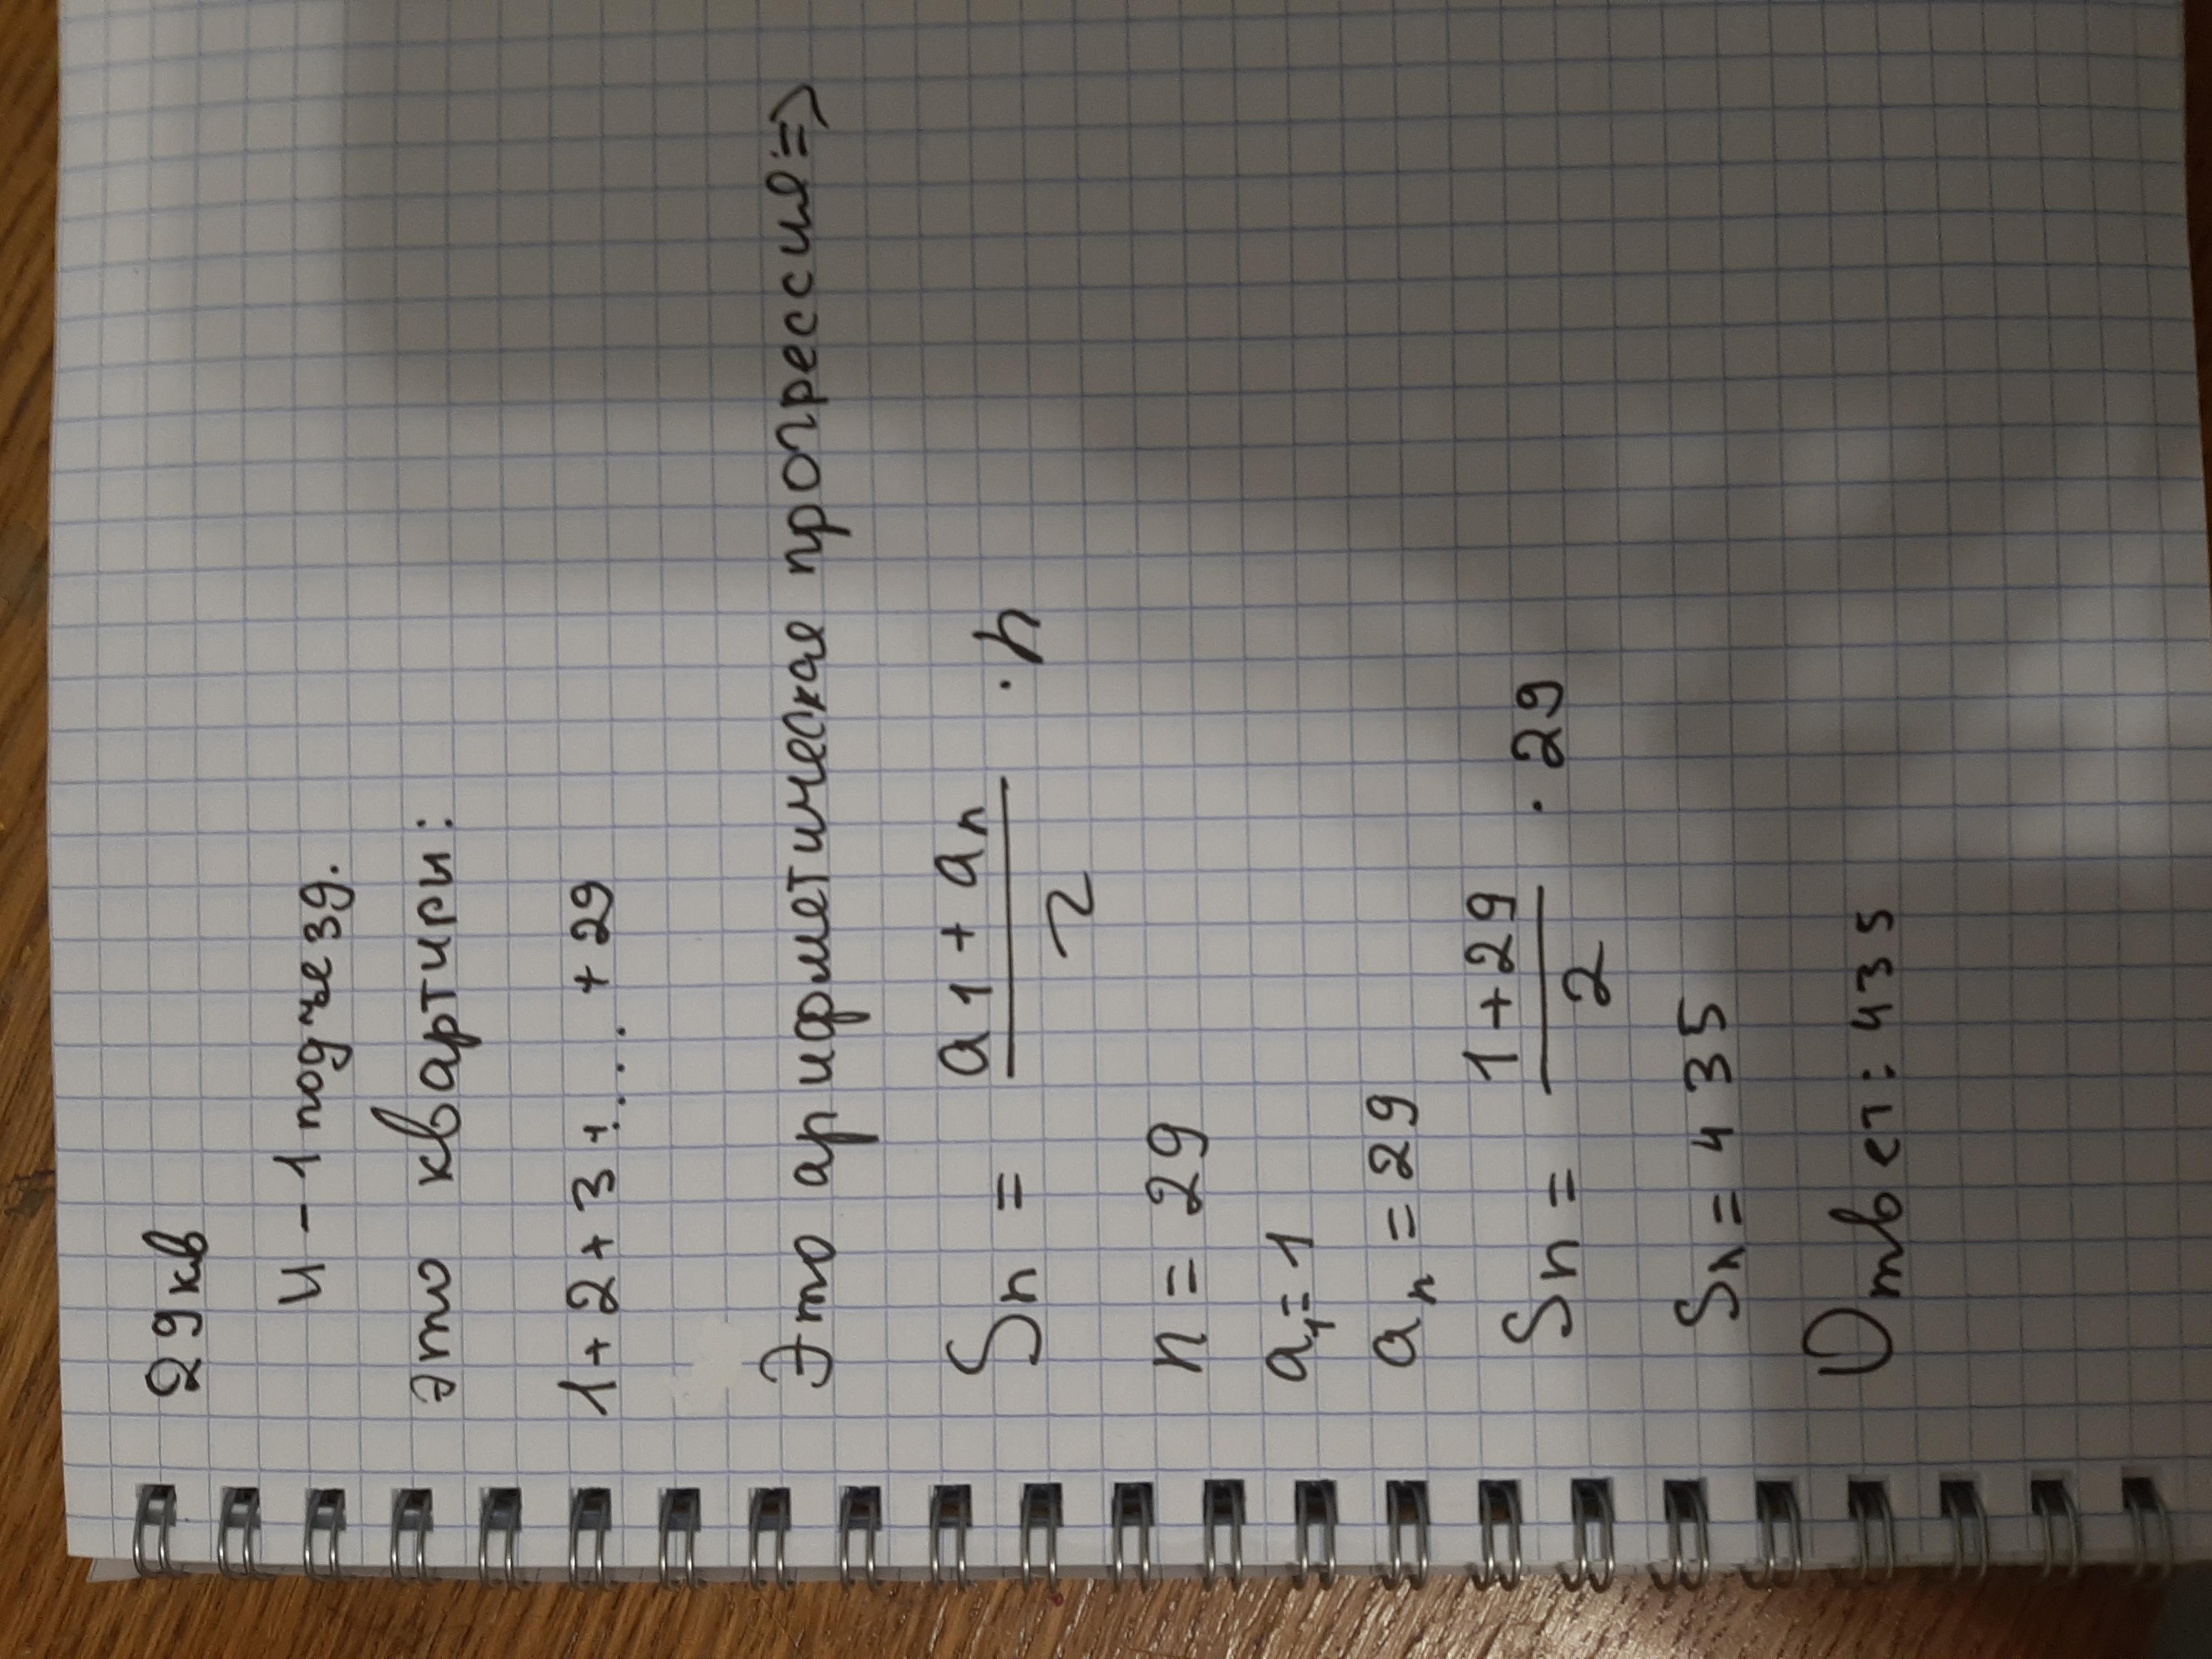 29 кв
и - 1 подъезд.
это квартиры:
1+2+3+...+29
Это арифметическая прогрессия =>
Sn = (a1 + an)/2 · n
n = 29
a1 = 1
an = 29
Sn = (1+29)/2 · 29
Sn = 435
Ответ: 435